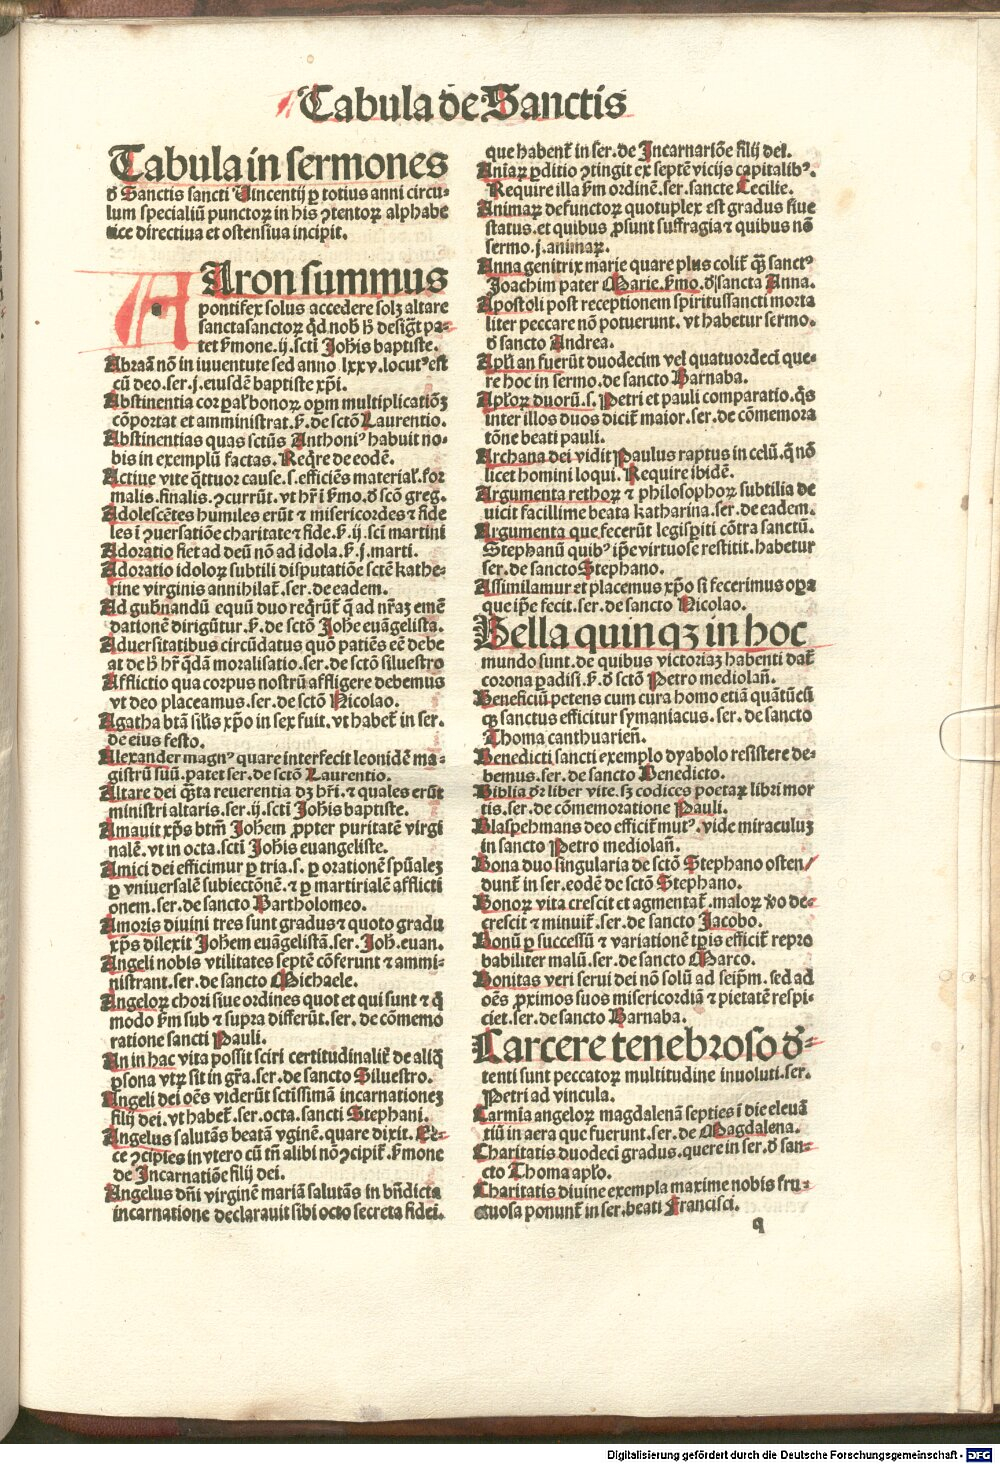 Tabula de Sanctis
Tabula in sermones
đ Sanctis sancti Vincentij ꝑ totius anni circu-
lum specialiū punctoꝝ in his ꝯtentoꝝ alphabe
tice directiua et ostensiua incipit.
AAron summus
pontifex solus accedere solꝫ altare
sanctasanctoꝝ qđ nob̄ h̄ desigt̄ pa-
tet ẜmone.ij.scti Joh̄is baptiste.
Abraā nō in iuuentute sed anno lxxv.locutꝰ est
cū deo.ser.j.eiusdē baptiste xp̄i.
Abstinentia corꝑal̓ bonoꝝ opm̄ multiplicatiōꝫ
cōportat et amministrat.ẜ.de sctō Laurentio.
Abstinentias quas sctūs Anthoniꝰ habuit no-
bis in exemplū factas. Reqͥre de eodē.
Actiue vite qͣttuor cause.s.efficiēs material̓.for
malis.finalis.ꝯcurrūt.vt hr̄ i ẜmo.đ scō greg.
Adolescētes humiles erūt ⁊ misericordes ⁊ fide
les ī ꝯuersatiōe charitate ⁊ fide.ẜ.ij.sci martini
Adoratio fiet ad deū nō ad idola.ẜ.j.marti.
Adoratio idoloꝝ subtili disputatiōe sctē kathe-
rine virginis annihilat̄.ser.de eadem.
Ad gub̄nandū equū duo reqͥrūt̄ q̄ ad nr̄aꝫ emē
dationē dirigūtur.ẜ.de sctō Johe euāgelista.
Aduersitatibus circūdatus quō patiēs eē debe
at de h̄ hr̄ qͣdā moralisatio.ser.de sctō siluestro
Afflictio qua corpus nostrū affligere debemus
vt deo placeamus.ser.de sctō Nicolao.
Agatha btā sil̓is xp̄o in sex fuit.vt habet̄ in ser.
de eius festo.
Alexander magnꝰ quare interfecit leonidē ma-
gistrū suū.patet ser.de sctō Laurentio.
Altare dei qͣ̄ta reuerentia dꝫ hr̄i.⁊ quales erūt
ministri altaris.ser.ij.scti Joh̄is baptiste.
Amauit xp̄s btm̄ Joh̄em ꝓpter puritatē virgi
nalē.vt in octa.scti Joh̄is euangeliste.
Amici dei efficimur ꝑ tria.s.ꝑ orationē spūaleꝫ
ꝑ vniuersalē subiectōnē.⁊ ꝑ martirialē afflicti
onem.ser.de sancto Bartholomeo.
Amoris diuini tres sunt gradus ⁊ quoto gradu
xp̄s dilexit Joh̄em euāgelistā.ser.Joh.euan.
Angeli nobis vtilitates septē cōferunt ⁊ ammi-
nistrant.ser.de sancto Michaele.
Angeloꝝ chori siue ordines quot et qui sunt ⁊ q̄
modo ẜm sub ⁊ supra differūt.ser.de cōmemo
ratione sancti Pauli.
An in hac vita possit sciri certitudinalit̄ de aliq̄
ꝑsona vtꝝ sit in gr̄a.ser.de sancto Siluestro.
Angeli dei oēs viderūt sctissimā incarnationeꝫ
filij dei.vt habet̄.ser.octa.sancti Stephani.
Angelus salutās beatā vginē.quare dixit.Ec-
ce ꝯcipies in vtero cū tn̄ alibi nō ꝯcipit̄.ẜmone
de Incarnatiōe filij dei.
Angelus dn̄i virginē mariā salutās in bn̄dicta
incarnatione declarauit sibi octo secreta fidei.
que habent̄ in ser.de Incarnariōe filij dei.
Anīaꝝ ꝑditio ꝯtingit ex septē vicijs capitalibꝰ.
Require illa ẜm ordinē.ser.sancte Cecilie.
Animaꝝ defunctoꝝ quotuplex est gradus siue
status.et quibus ꝓsunt suffragia ⁊ quibus nō
sermo.j.animaꝝ.
Anna genitrix marie quare plus colit̄ qͣ̄ sanctꝰ
Joachim pater Marie.ẜmo.đ sancta Anna.
Apostoli post receptionem spiritussancti morta
liter peccare nō potuerunt.vt habetur sermo.
đ sancto Andrea.
Apl̓i an fuerūt duodecim vel quatuordeci que-
re hoc in sermo.de sancto Barnaba.
Apl̓oꝝ duorū.s.Petri et pauli comparatio.qͥs
inter illos duos dicit̄ maior.ser.de cōmemora
tōne beati pauli.
Archana dei vidit Paulus raptus in celū.q̄ nō
licet homini loqui. Require ibidē.
Argumenta rethoꝝ ⁊ philosophoꝝ subtilia de
uicit facillime beata Katharina.ser.de eadem.
Argumenta que fecerūt legisꝑiti cōtra sanctū.
Stephanū quibꝰ ip̄e virtuose restitit.habetur
ser.de sancto Stephano.
Assimilamur et placemus xp̄o si fecerimus oꝑa
que ip̄e fecit.ser.de sancto Nicolao.
Bella quinqꝫ in hoc
mundo sunt.de quibus victoriaꝫ habenti dat̄
corona ꝑadisi.ẜ.đ sctō Petro mediolan̄.
Beneficiū petens cum cura homo etiā quātūcū
qꝫ sanctus efficitur symaniacus.ser.de sancto
Thoma canthuarien̄.
Benedicti sancti exemplo dyabolo resistere de-
bemus.ser.de sancto Benedicto.
Biblia dr̄ liber vite.sꝫ codices poetaꝝ libri mor
tis.ser.de cōmemoratione Pauli.
Blaspehmans deo efficit̄ mutꝰ.vide miraculuꝫ
in sancto Petro mediolan̄.
Bona duo singularia de sctō Stephano osten/
dunt̄ in ser.eodē de sctō Stephano.
Bonoꝝ vita crescit et agmentat̄.maloꝝ ꝟo de-
crescit ⁊ minuit̄.ser.de sancto Jacobo.
Bonū ꝑ successū ⁊ variationē tꝑis efficit̄ repro
babiliter malū.ser.de sancto Marco.
Bonitas veri serui dei nō solū ad seip̄m.sed ad
oēs ꝓximos suos misericordiā ⁊ pietatē respi-
ciet.ser.de sancto Barnaba.
Carcere tenebroso đ-
tenti sunt peccatoꝝ multitudine inuoluti.ser.
Petri ad vincula.
Carmia angeloꝝ magdalenā septies ī die eleuā
tiū in aera que fuerunt.ser.de Magdalena.
Charitatis duodeci gradus.quere in ser.đ san-
cto Thoma apl̓o.
Charitatis diuine exempla maxime nobis fru-
ctuosa ponunt̄ in ser.beati Francisci.
q
Digitalisierung gefördert durch die Deutsche Forschungsgemeinschaft - DFG